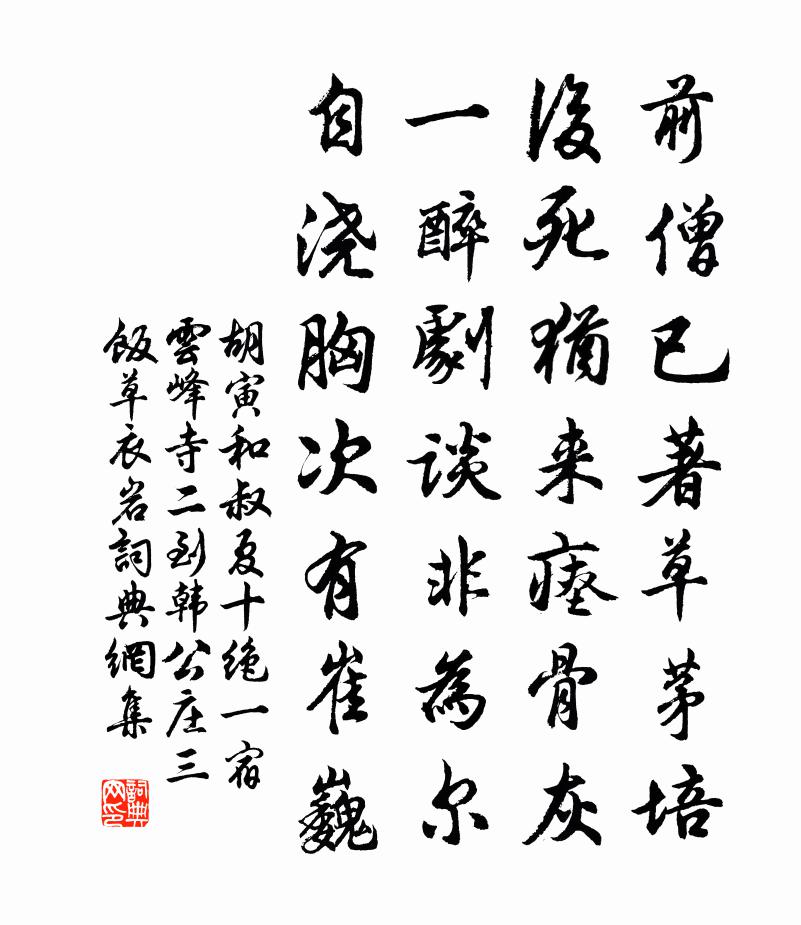 前僧已著草茅培
後死猶来瘞骨灰
一醉劇谈非為尔
自浇胸次有崔巍
胡寅和叔夏十绝一宿
雲峰寺二到韩公庄三
飯草衣岩詞典網集
詞典网印